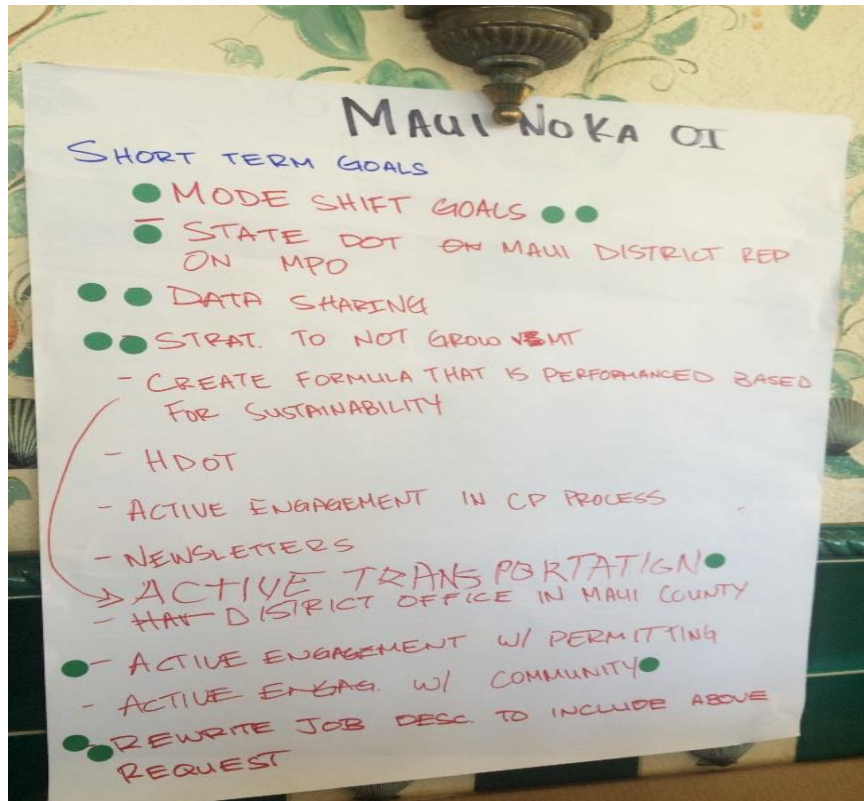 MAUI NO KA OI
SHORT TERM GOALS
MODE SHIFT GOALS
- STATE DOT ON MAUI DISTRICT REP
ON MPO
DATA SHARING
STRAT. TO NOT GROW VMT
- CREATE FORMULA THAT IS PERFORMANCED BASED
FOR SUSTAINABILITY
- HDOT
- ACTIVE ENGAGEMENT IN CP PROCESS
- NEWSLETTERS
ACTIVE TRANSPORTATION
- HAV DISTRICT OFFICE IN MAUI COUNTY
- ACTIVE ENGAGEMENT W/ PERMITTING
- ACTIVE ENGAG. W/ COMMUNITY
- REWRITE JOB DESC. TO INCLUDE ABOVE
REQUEST